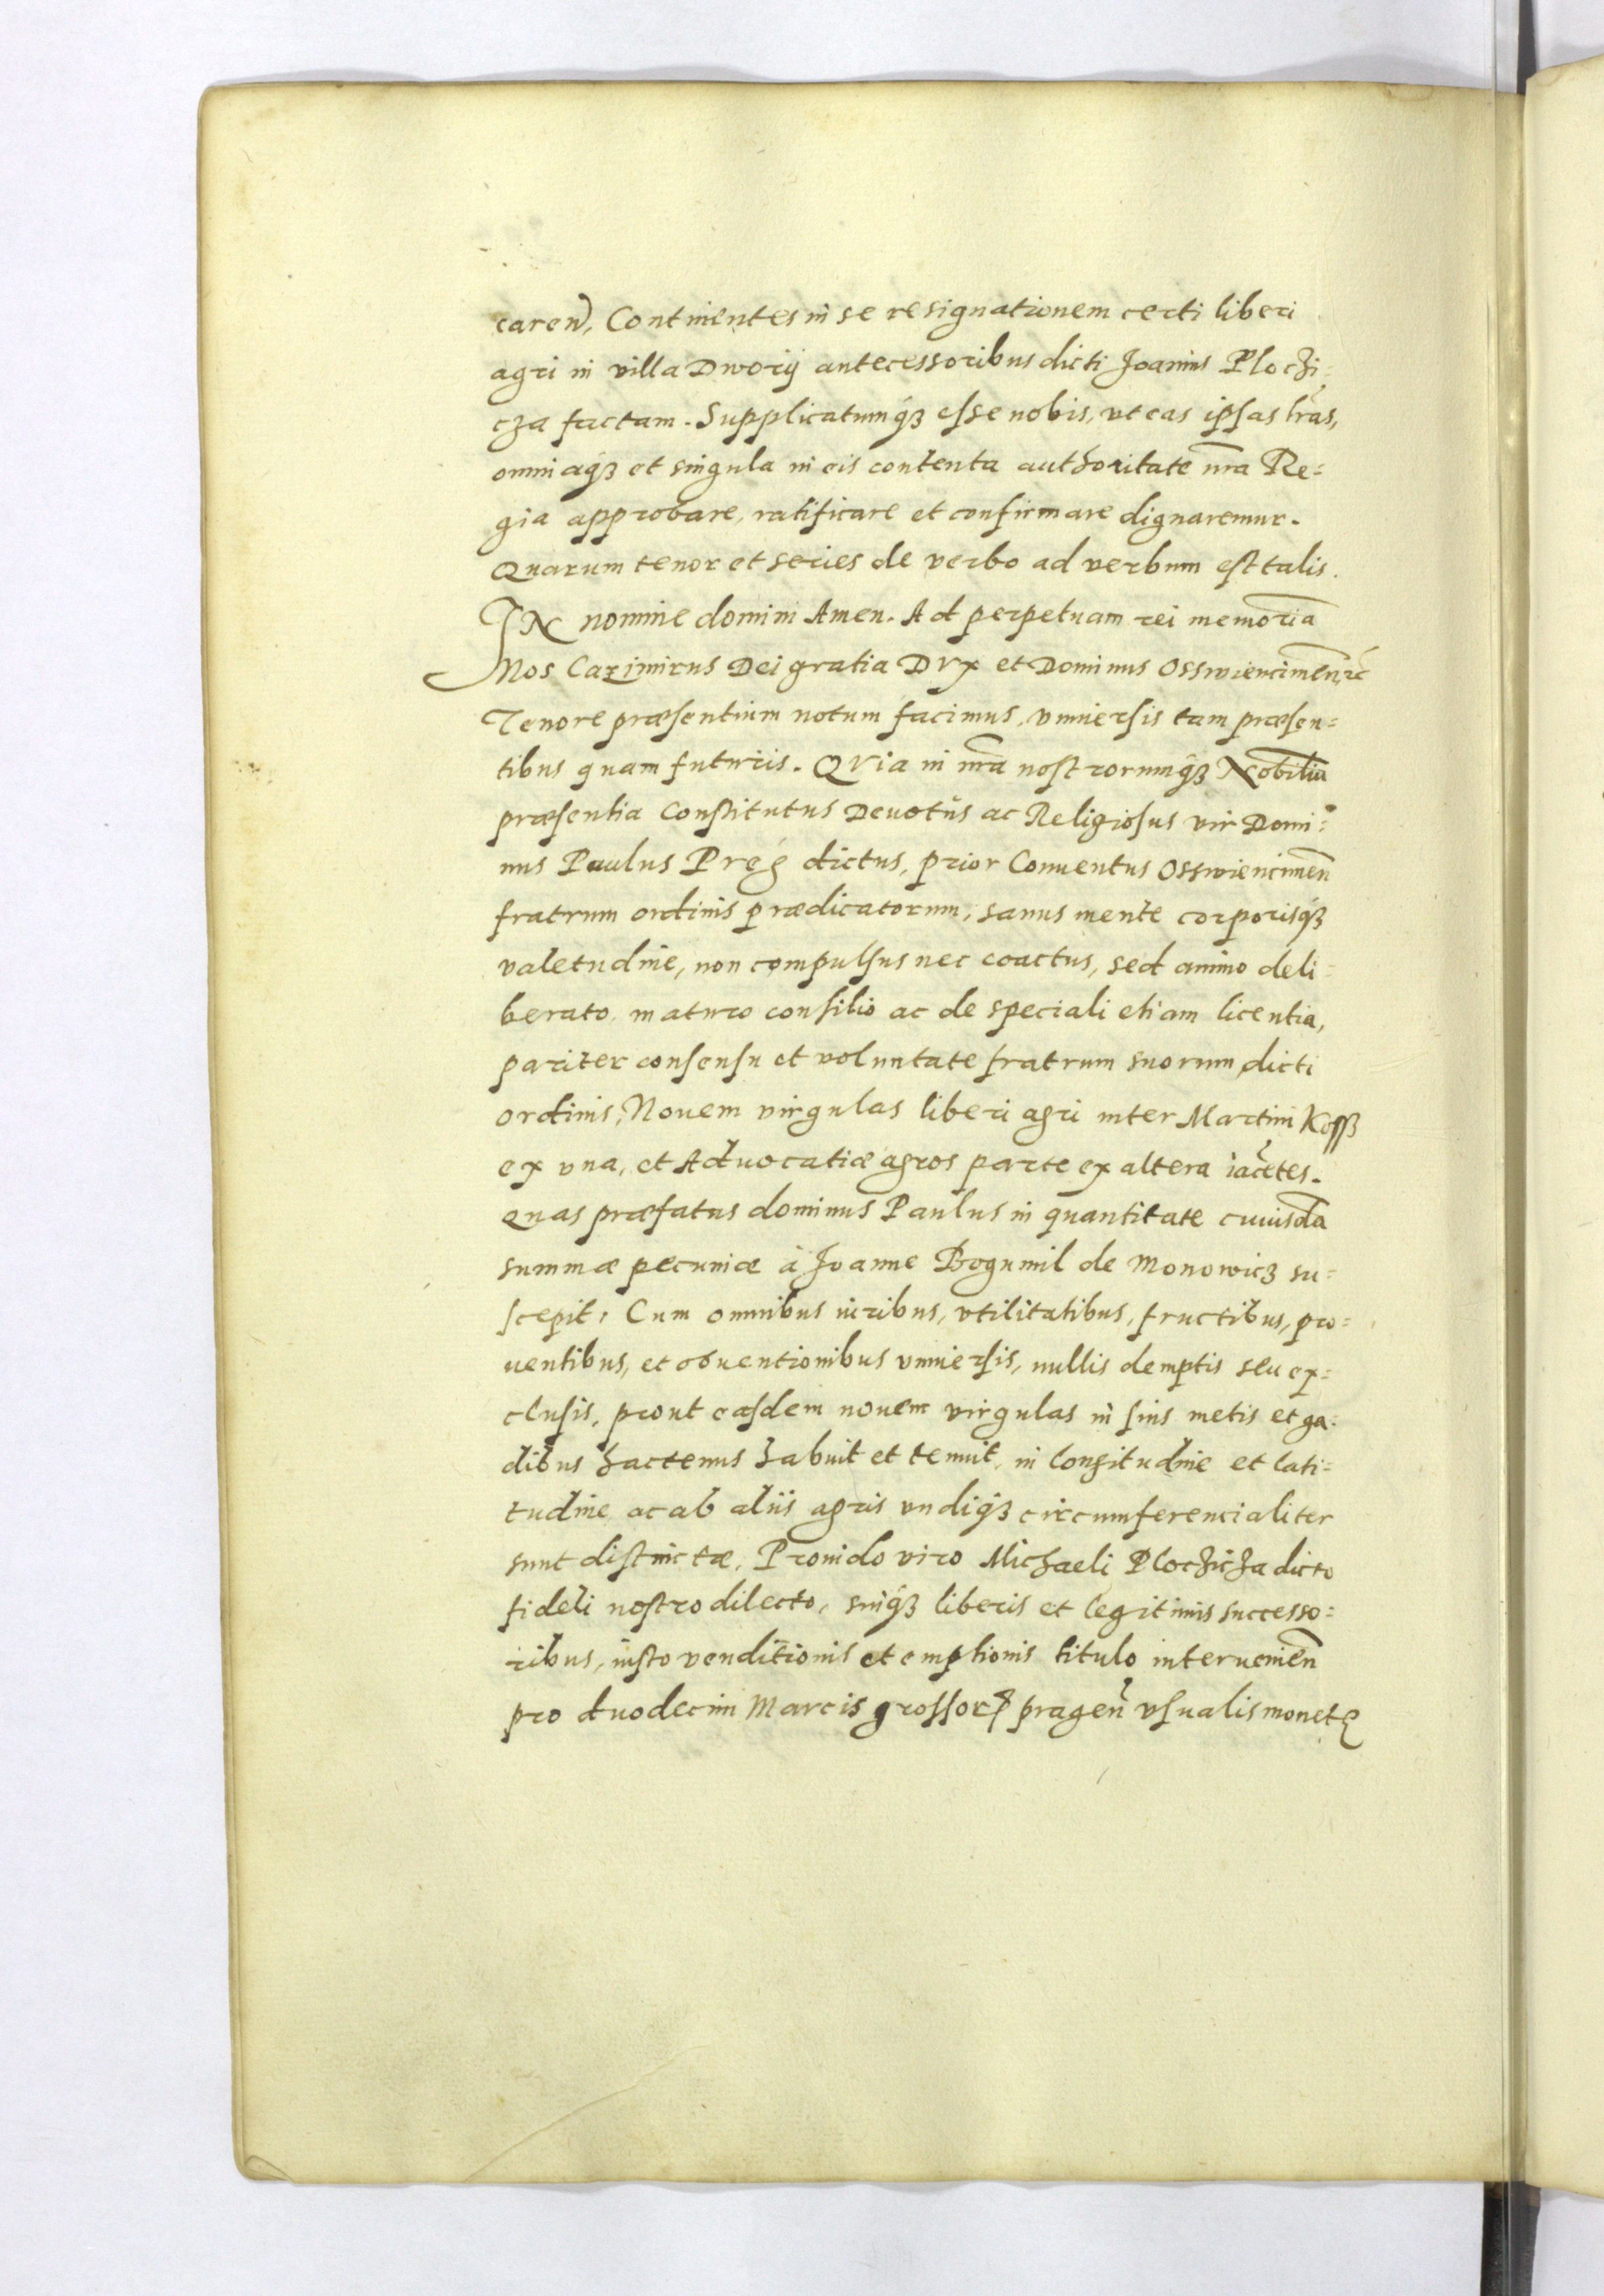 caren̄, Continentes in se resignationem certi liberi
agri in villa Dworij antecessoribus dicti Joannis Ploczi=
cza factam. Supplicatumq́ꝫ esse nobis, vt eas ipsas l̄ras,
omniaq́ꝫ et singula in eis contenta authoritate n̄ra Re=
gia approbare, ratificare et confirmare dignaremur.
Quarum tenor et series de verbo ad verbum est talis.
IN nomine domini Amen. Ad perpetuam rei memoriā
Nos Cazimirus Dei gratia Dvx et Dominus Osswiencimen̄, ꝛc̄
Tenore præsentium notum facimus, vniuersis tam præsen=
tibus quam futuris. QVia in n̄ra nostrorumq́ꝫ Nobiliū
præsentia Constitutus Deuotus ac Religiosus vir Domi=
nus Paulus Preg dictus, prior Conuentus Osswiencimen̄
fratrum ordinis prædicatorum, sanus mente corporisq́ꝫ
valetudine, non compulsus nec coactus, sed animo deli=
berato, maturo consilio ac de speciali etiam licentia,
pariter consensu et voluntate fratrum suorum dicti
ordinis, Nouem virgulas liberi agri inter Martini Koss
ex vna, et Aduocatiæ agros parte ex altera iacētes.
Quas præfatus dominus Paulus in quantitate cuiusdā
summæ pecuniæ à Joanne Bogumil de Monowicz su=
scepit, Cum omnibus iuribus, vtilitatibus, fructibus, pro=
uentibus, et obuentionibus vniuersis, nullis demptis seu ex=
clusis, prout easdem nouem virgulas in suis metis et ga=
dibus hactenus habuit et tenuit, in longitudine et lati=
tudine ac ab aliis agris vndiq́ꝫ circumferencialiter
sunt distinctæ, Prouido viro Michaeli Ploczicza dicto
fideli nostro dilecto, suiq́ꝫ liberis et legitimis successo=
ribus, iusto venditionis et emptionis titulo interuenien̄
pro duodecim Marcis grossorꝝ pragen̄ vsualis monetę